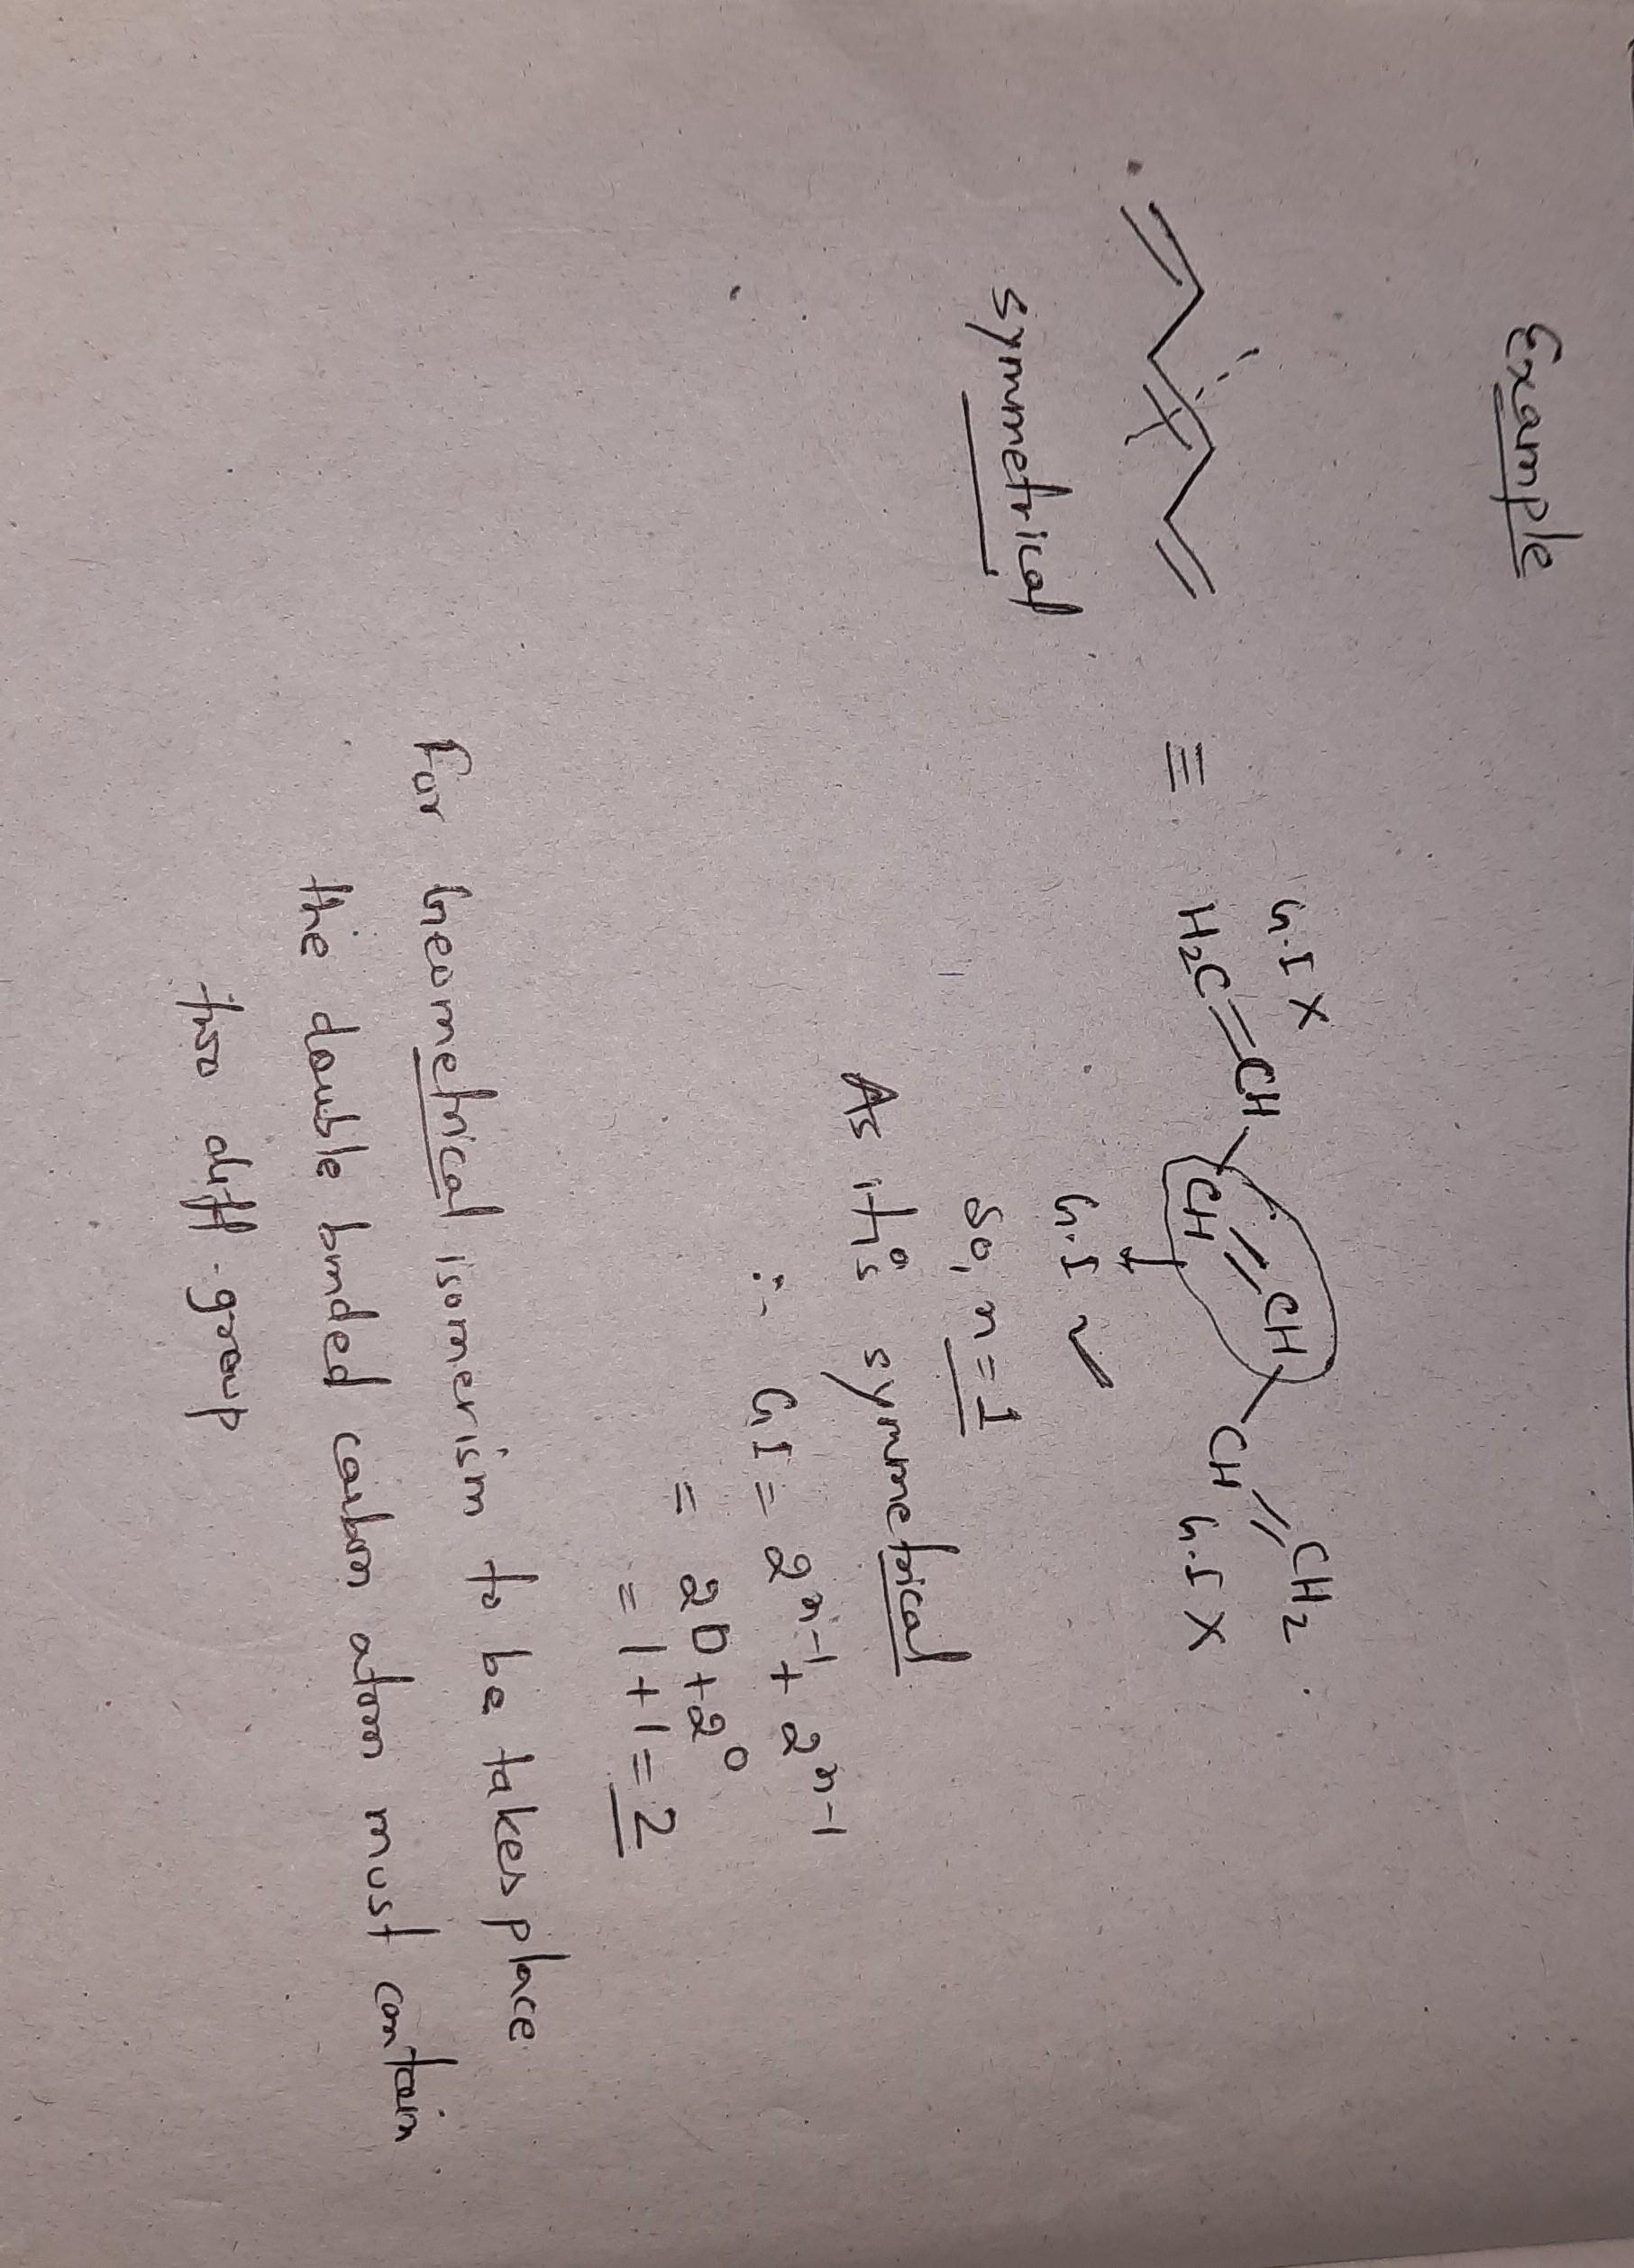 Example
≡
G.I X
H₂C=CH-CH=CH-CH=CH₂
G.I X
G.I ✓
symmetrical
so, n=1
As it's symmetrical
∴ GI = 2ⁿ⁻¹ + 2ⁿ⁻¹
= 2⁰+2⁰
= 1+1=2
For Geometrical isomerism to be takes place
the double bonded carbon atom must contain
two diff. group